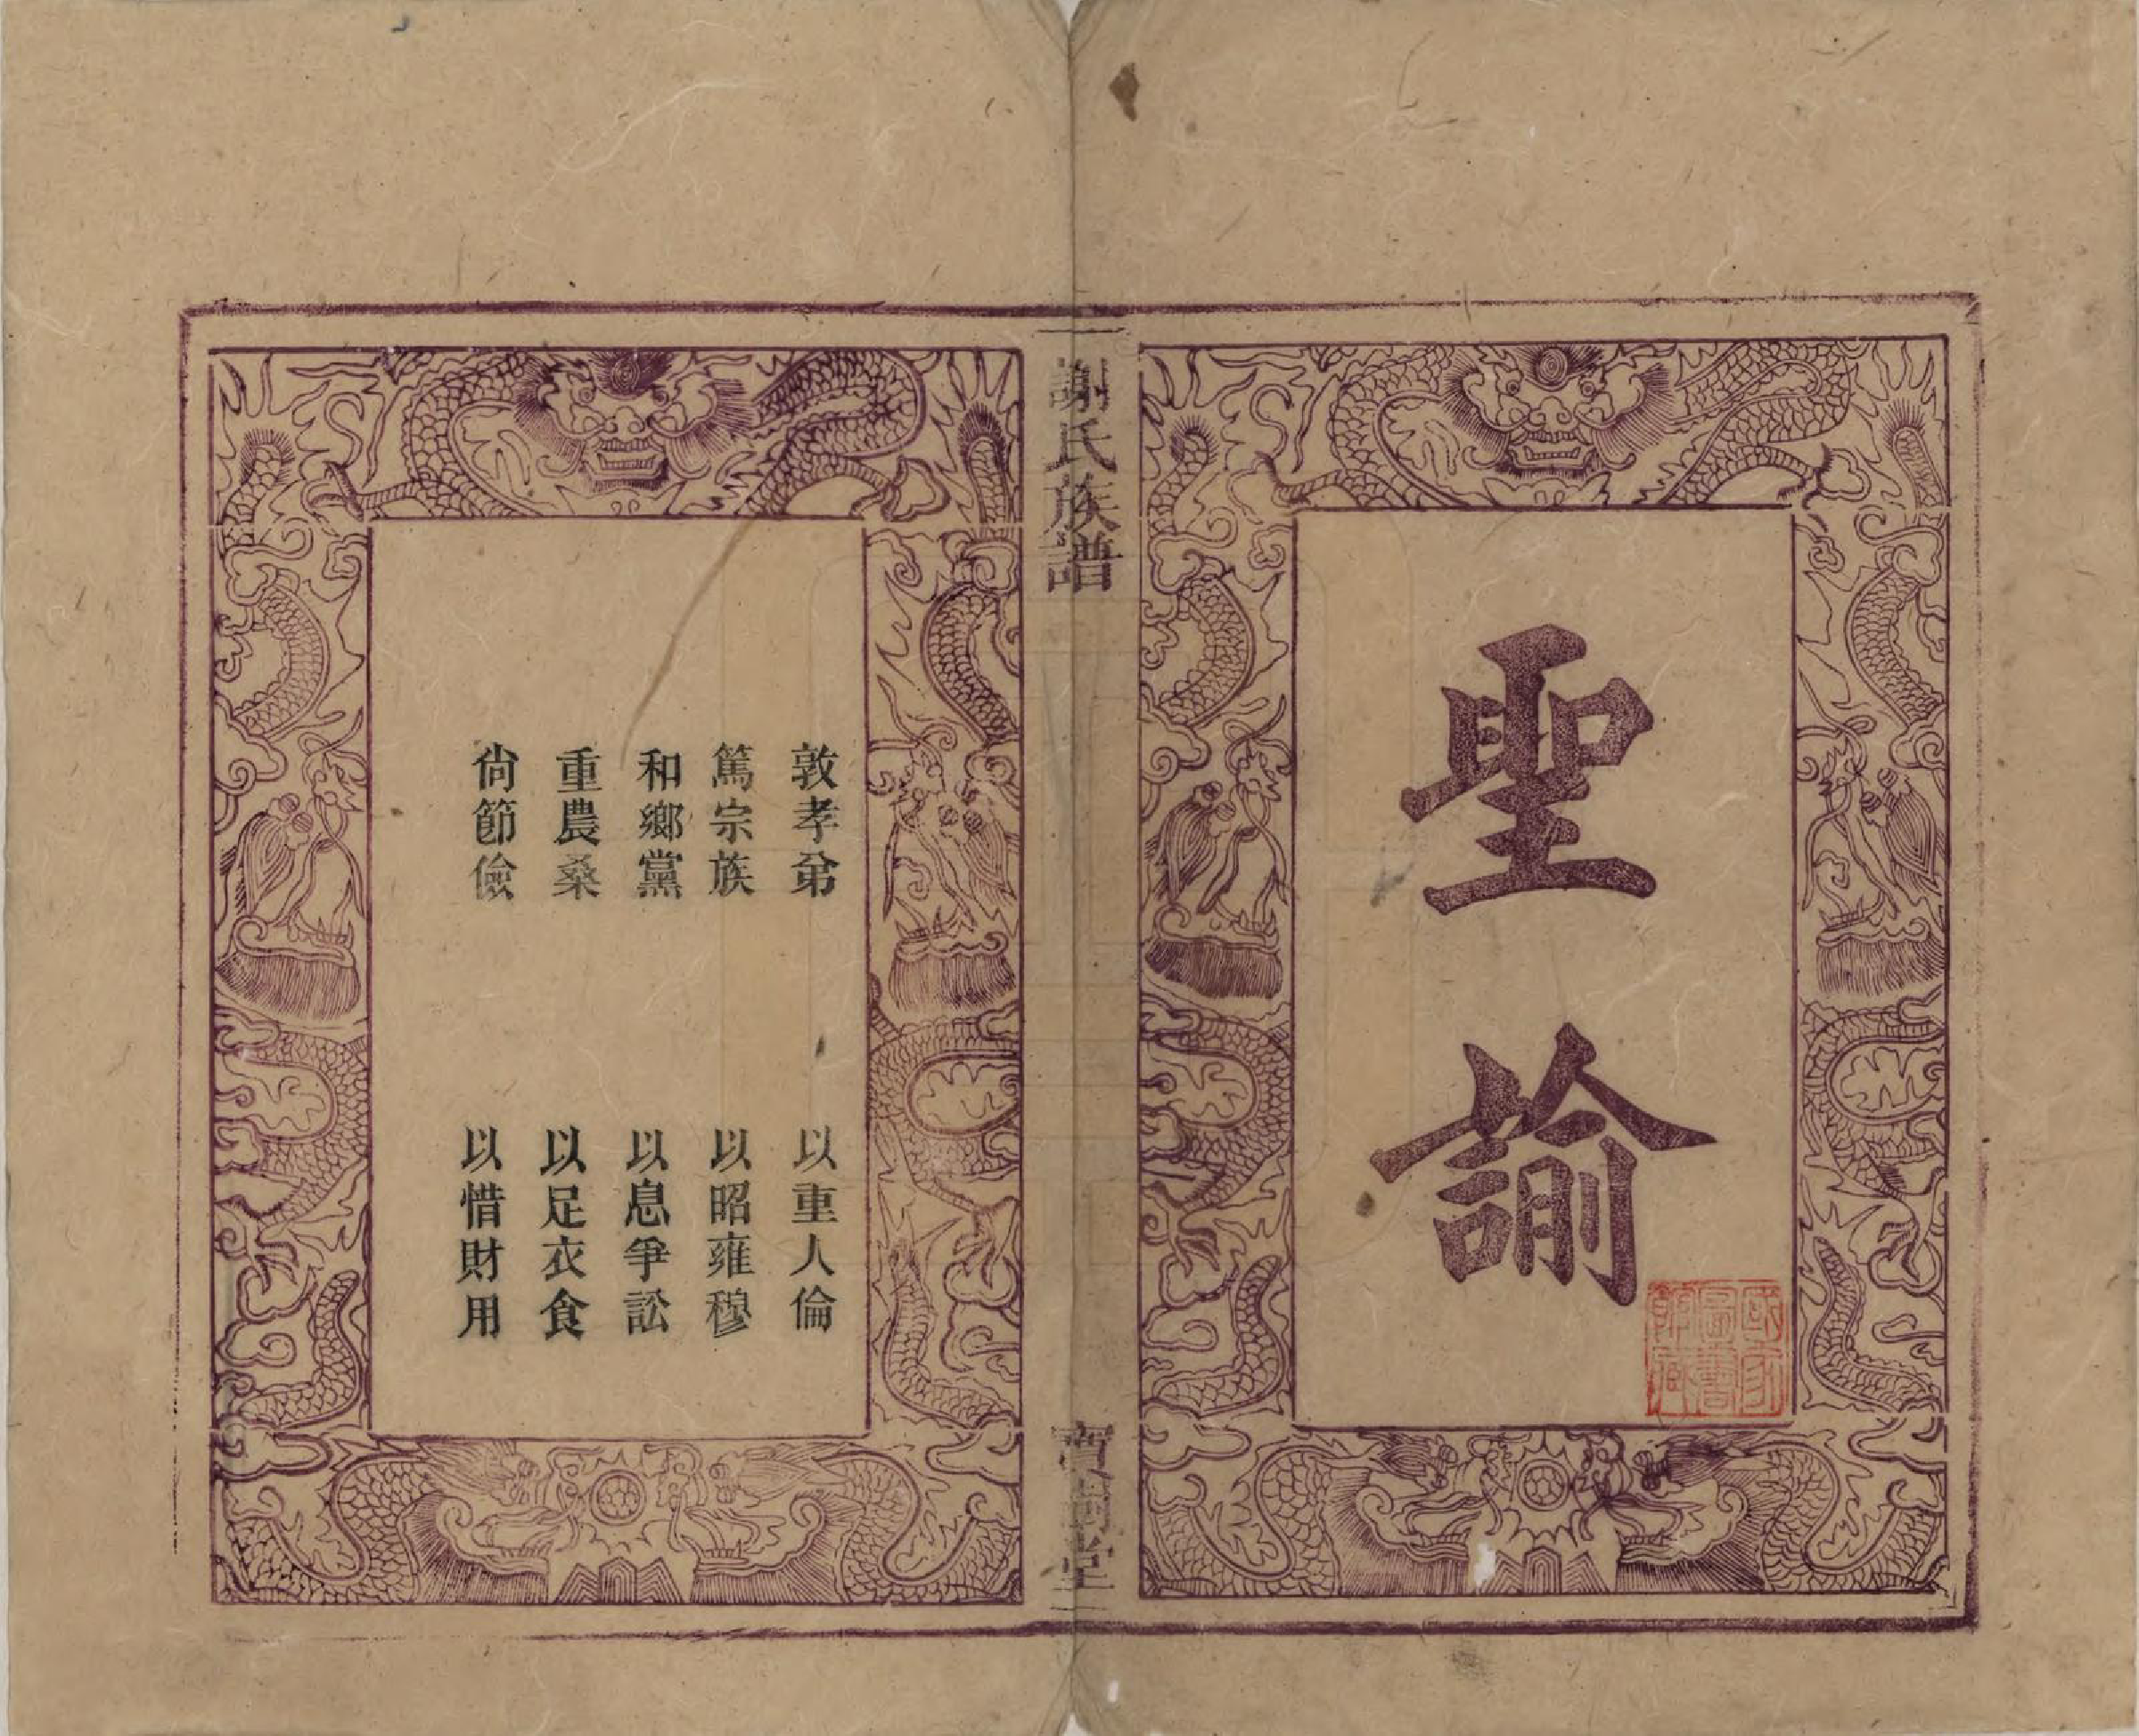 聖諭
國家圖書館藏
謝氏族譜
寶樹堂
敦孝弟 以重人倫
篤宗族 以昭雍穆
和鄉黨 以息爭訟
重農桑 以足衣食
尙節儉 以惜財用